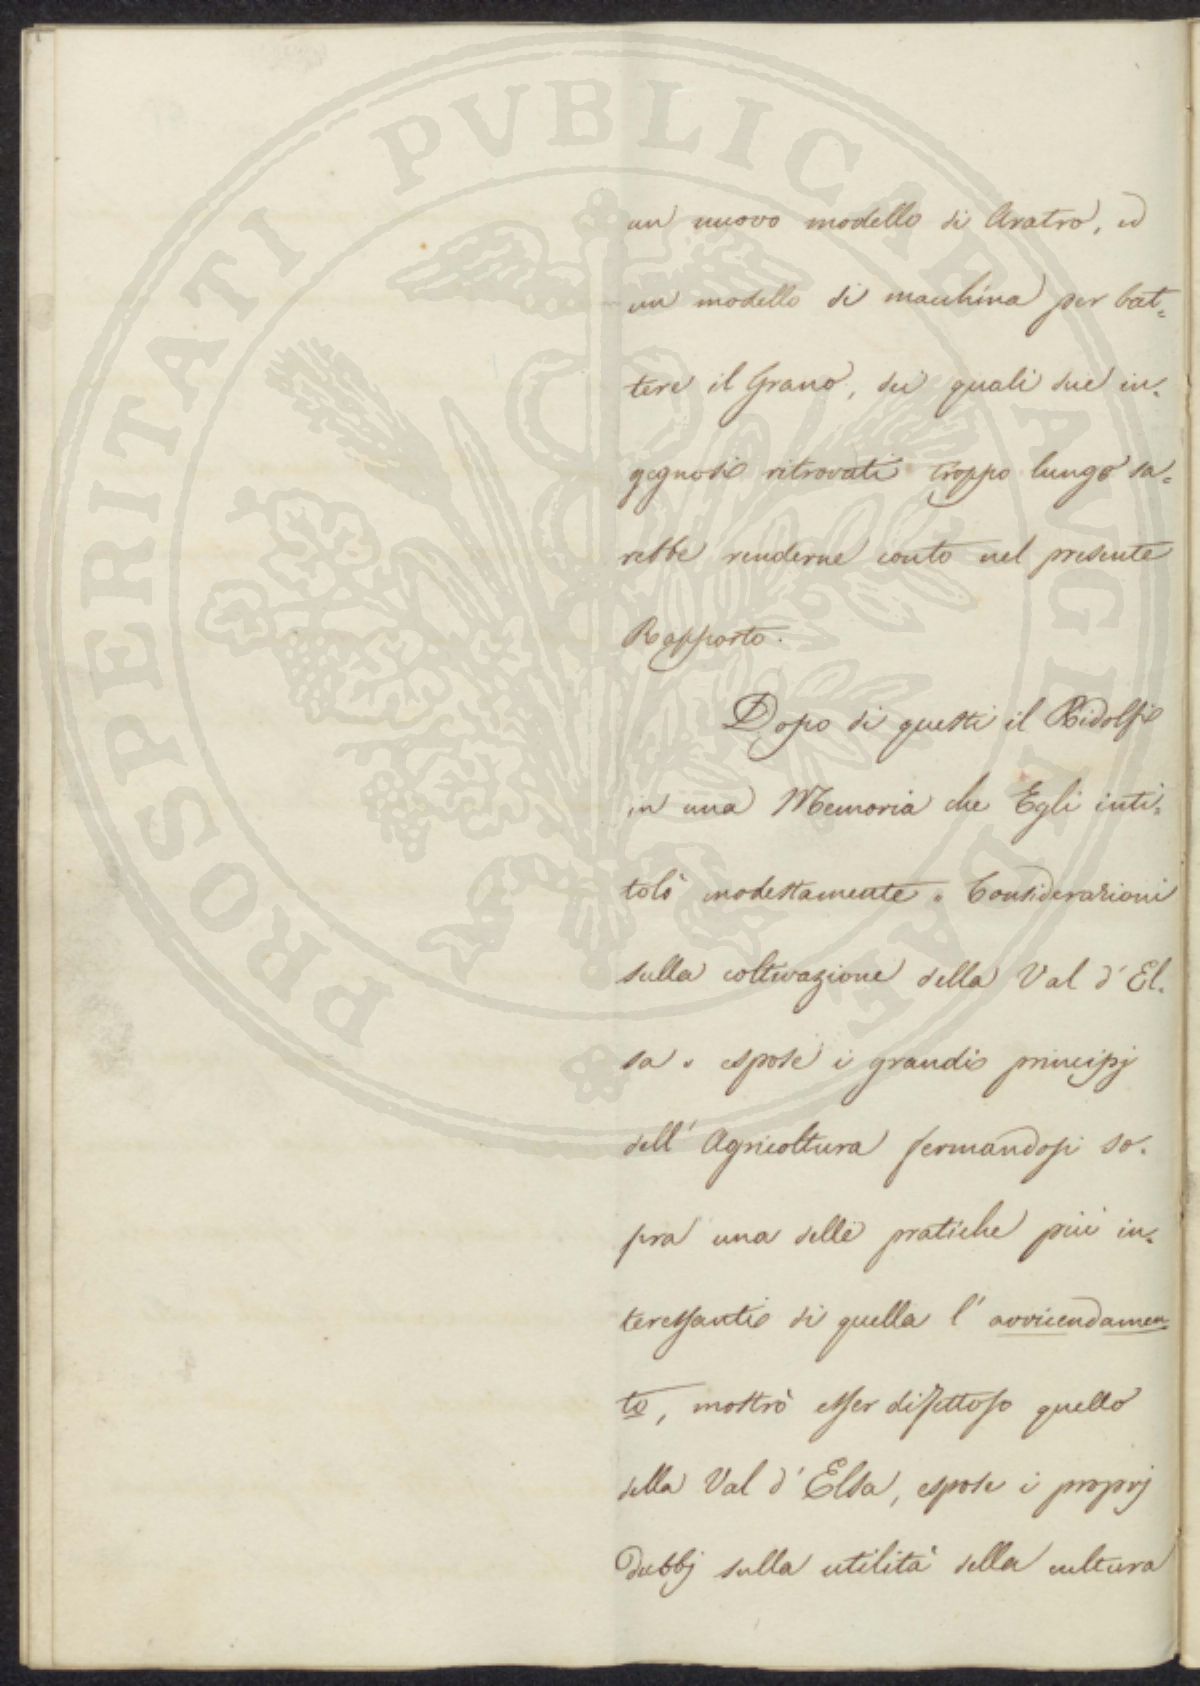 PROSPERITATI PVBLICAE AVGENDAE
un nuovo modello di Aratro, ed
un modello di macchina per bat=
tere il Grano, dei quali due in=
gegnosi ritrovati troppo lungo sa=
rebbe renderne conto nel presente
Rapporto.
Dopo di questi il Ridolfi
in una Memoria che Egli inti=
tolò modestamente " Considerazioni
sulla coltivazione della Val d'El=
sa " espose i grandi principj
dell'Agricoltura fermandosi so=
pra una delle pratiche più in=
teressanti di quella l'avvicendamen=
to, mostrò esser difettoso quello
della Val d'Elsa, espose i proprj
dubbj sulla utilità della cultura